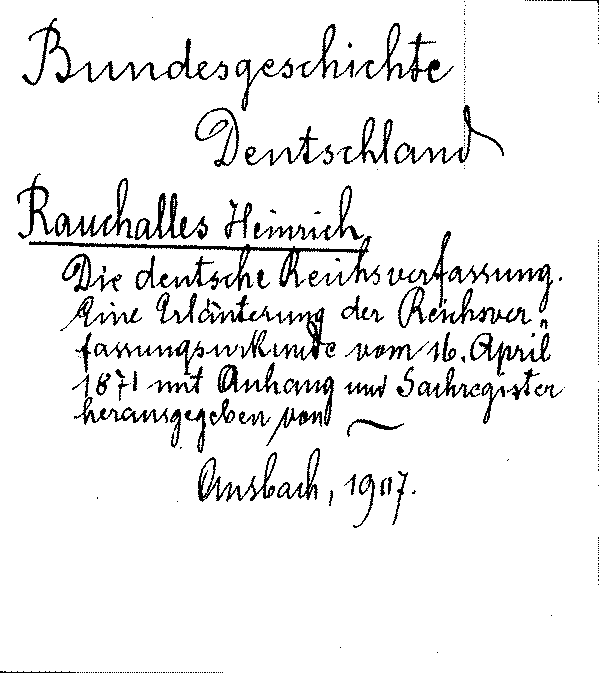 Bundesgeschichte
Deutschland
Rauchalles Heinrich
Die deutsche Reichsverfassung.
Eine Erläuterung der Reichsver„
fassungsurkunde vom 16. April
1871 mit Anhang und Sachregister
herausgegeben von ~
Ansbach, 1907.